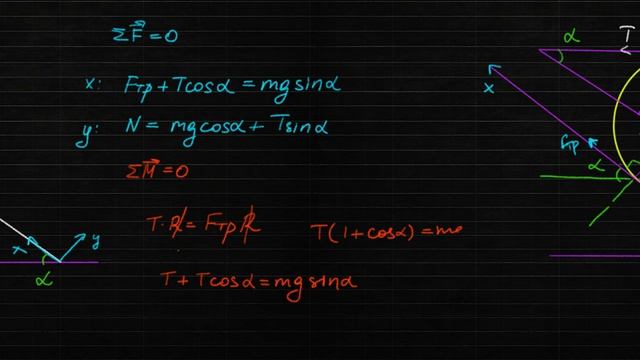 ΣF⃗ = 0
x: Fтр + Tcosα = mgsinα
y: N = mgcosα + Tsinα
ΣM⃗ = 0
T·R = Fтр R
T(1+cosα) = mg
T + Tcosα = mgsinα
x y
α
α T
x
Fтр
α